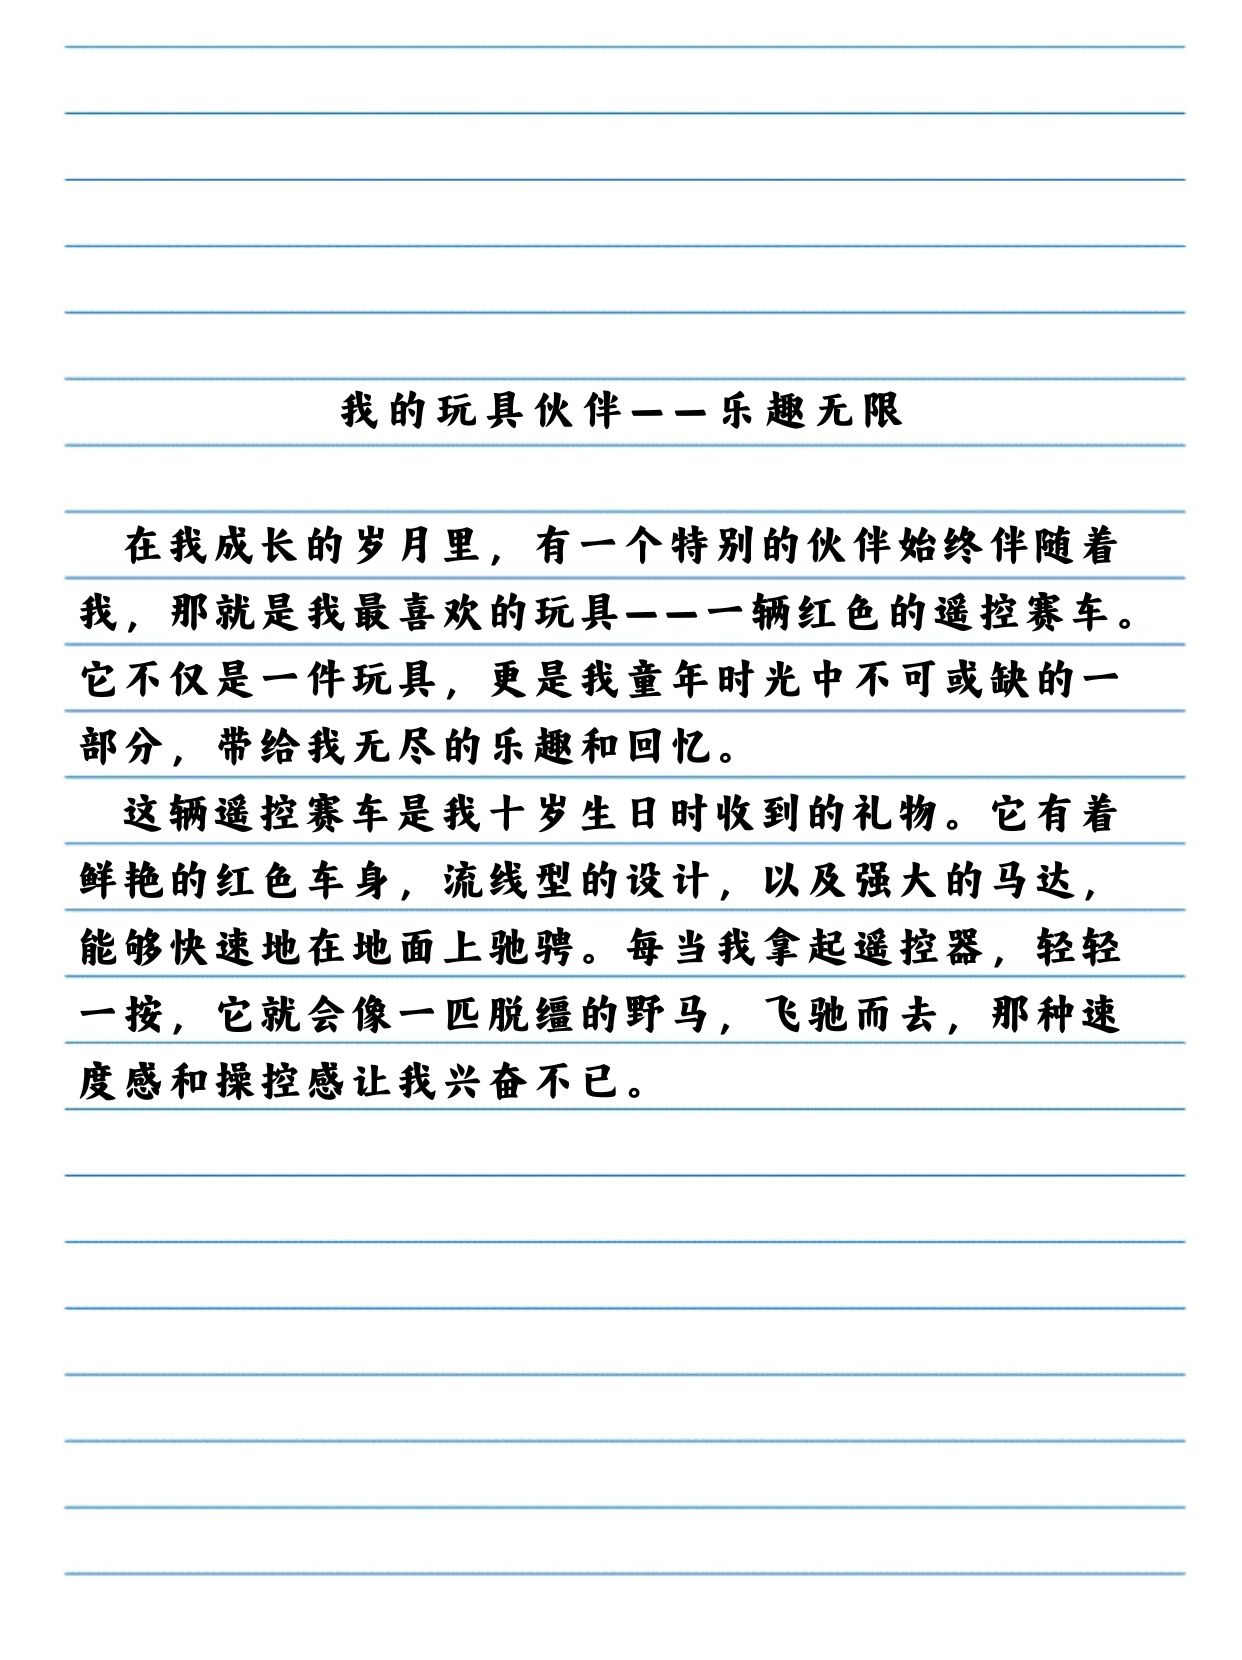 我的玩具伙伴——乐趣无限
在我成长的岁月里，有一个特别的伙伴始终伴随着
我，那就是我最喜欢的玩具——一辆红色的遥控赛车。
它不仅是一件玩具，更是我童年时光中不可或缺的一
部分，带给我无尽的乐趣和回忆。
这辆遥控赛车是我十岁生日时收到的礼物。它有着
鲜艳的红色车身，流线型的设计，以及强大的马达，
能够快速地在地面上驰骋。每当我拿起遥控器，轻轻
一按，它就会像一匹脱缰的野马，飞驰而去，那种速
度感和操控感让我兴奋不已。